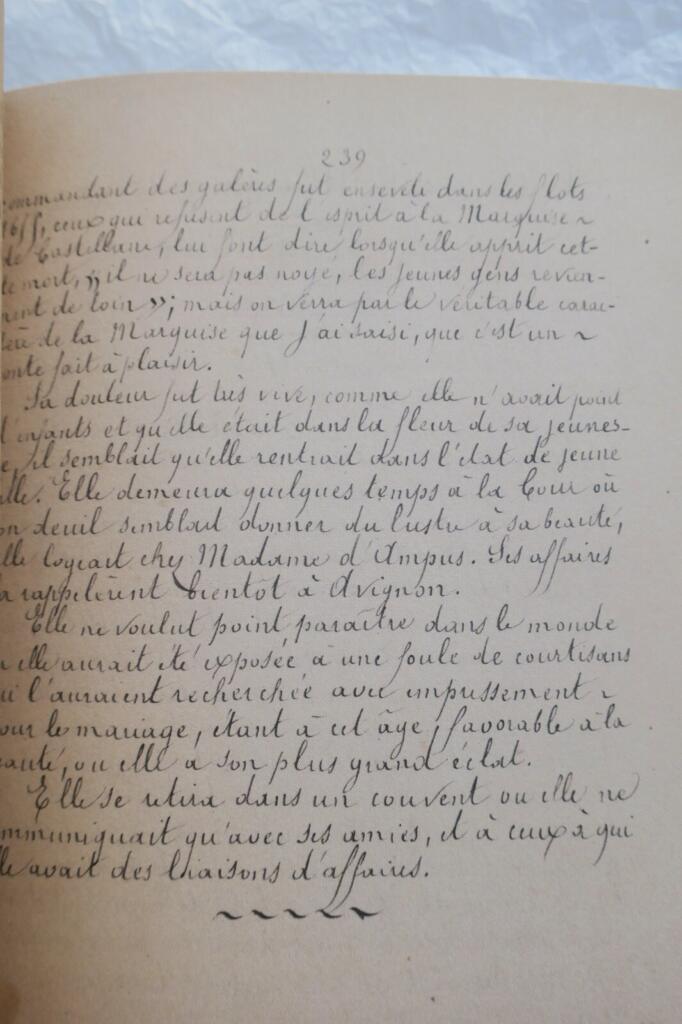 239
ommandant des galères fut enseveli dans les flots
1655, ceux qui refusent de l'esprit à la Marquise ~
de Castellane, lui font dire lorsqu'elle apprit cet-
te mort, « il ne sera pas noyé, les jeunes gens revien-
nent de loin »; mais on verra par le véritable carac-
tère de la Marquise que j'ai saisi, que c'est un ~
onte fait à plaisir.
Sa douleur fut très vive, comme elle n'avait point
d'enfants et qu'elle était dans la fleur de sa jeunes-
e, il semblait qu'elle rentrait dans l'état de jeune
ille. Elle demeura quelques temps à la Cour où
on deuil semblait donner du lustre à sa beauté,
lle logeait chez Madame d'Ampus. Ses affaires
a rappelèrent bientôt à Avignon.
Elle ne voulut point paraître dans le monde
ù elle aurait été exposée à une foule de courtisans
ui l'auraient recherchée avec empressement ~
our le mariage, étant à cet âge, favorable à la
eauté, ou elle a son plus grand éclat.
Elle se retira dans un couvent ou elle ne
mmuniquait qu'avec ses amies, et à ceux à qui
lle avait des liaisons d'affaires.